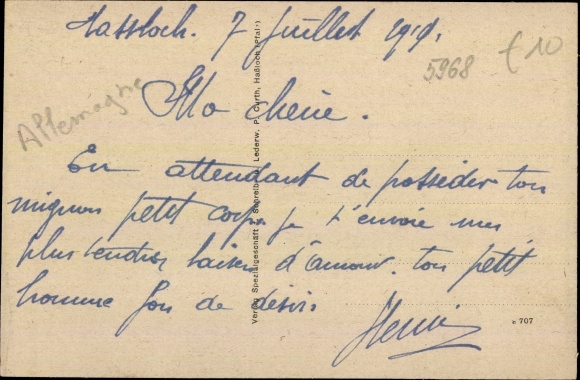 Hassloch. 7 Juillet 1919.
5968 £10
Allemagne
Ma chérie.
En attendant de posséder ton
mignon petit corps je t'envoie mes
plus tendres baisers d'amour. ton petit
homme fou de désirs
Henri
Verlag Spezialgeschäft f. Schreib- u. Lederw. P. Curth, Haßloch (Pfalz)
n 707